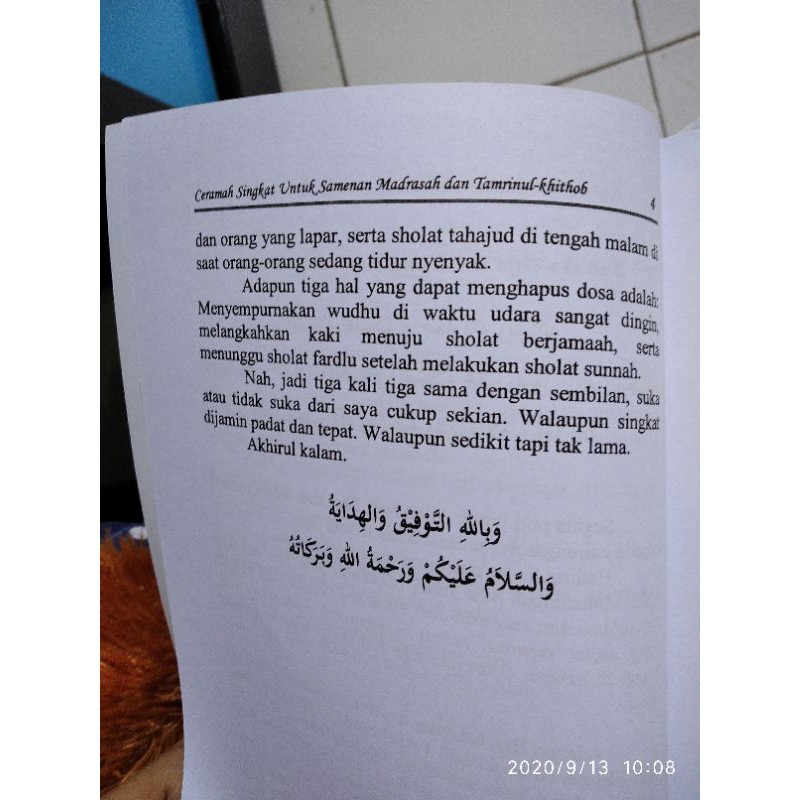 Ceramah Singkat Untuk Samenan Madrasah dan Tamrinul-khithob
4
dan orang yang lapar, serta sholat tahajud di tengah malam di
saat orang-orang sedang tidur nyenyak.
Adapun tiga hal yang dapat menghapus dosa adalah:
Menyempurnakan wudhu di waktu udara sangat dingin,
melangkahkan kaki menuju sholat berjamaah, serta
menunggu sholat fardlu setelah melakukan sholat sunnah.
Nah, jadi tiga kali tiga sama dengan sembilan, suka
atau tidak suka dari saya cukup sekian. Walaupun singkat
dijamin padat dan tepat. Walaupun sedikit tapi tak lama.
Akhirul kalam.
وَبِاللهِ التَّوْفِيْقُ وَالْهِدَايَةُ
وَالسَّلاَمُ عَلَيْكُمْ وَرَحْمَةُ اللهِ وَبَرَكَاتُهُ
2020/9/13 10:08